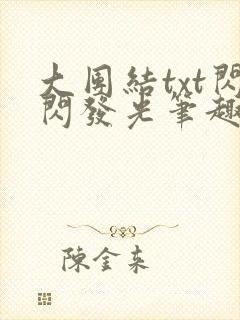 大團結txt閃
閃發光筆趣
陳金東